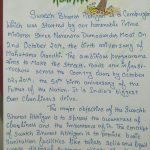 Swachh Bharat Abhiyan is a Campaign
which was started by our honorable Prime
Minister Shree Narendra Damodardas Modi on
2nd October 2014, the birth anniversary of
Mahatma Gandhi. The ambitious programme
aims to make the streets, roads and infra-
structure across the Country clean by October
2nd, 2019, the 150th birth anniversary of the
Father of the Nation. It is India's biggest
ever cleanliness drive.
The major objective of the Swachh
Bharat Abhiyan is to spread the awareness
of cleanliness and the importance of it. The concept
of Swachh Bharat Abhiyan is to provide basic
sanitation facilities like toilets, solid and liquid